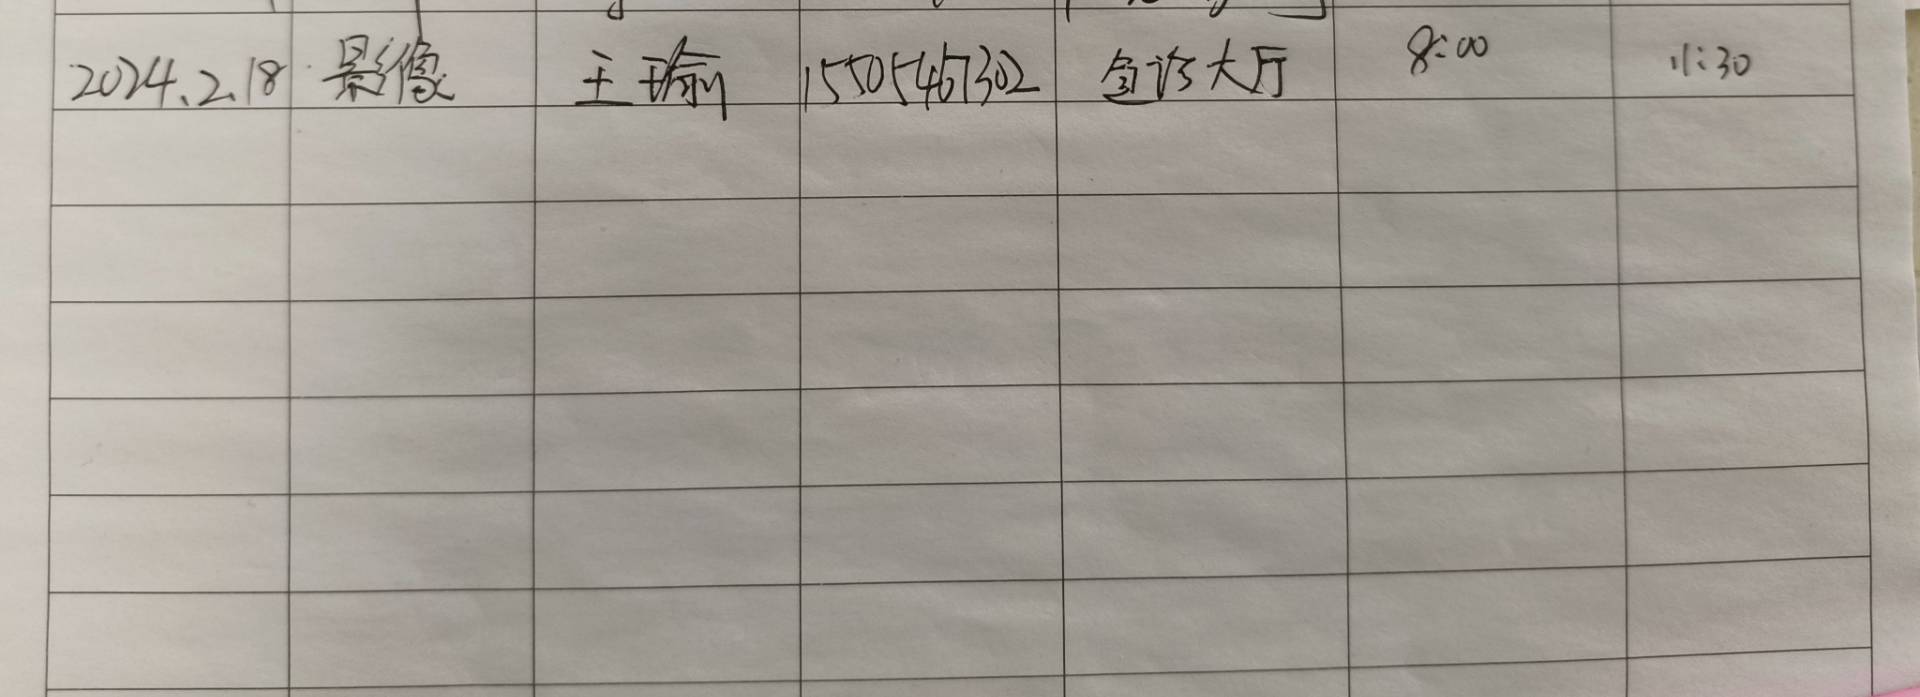 2024.2.18 影像 王瑜 15505467302 急诊大厅 8:00 11:30